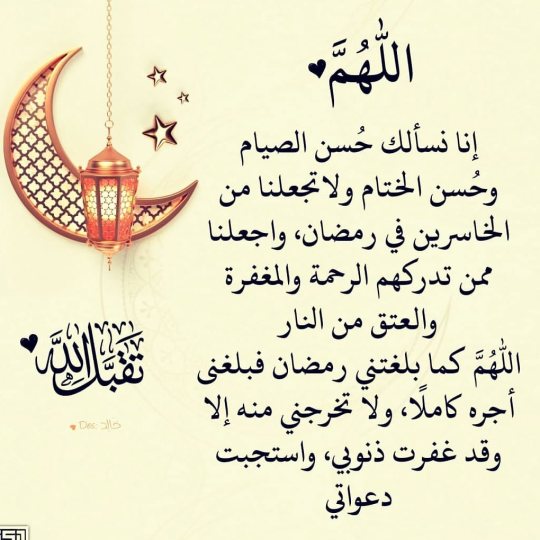 اللّٰهُمَّ
إنا نسألك حُسن الصيام
وحُسن الختام ولاتجعلنا من
الخاسرين في رمضان، واجعلنا
ممن تدركهم الرحمة والمغفرة
والعتق من النار
اللّٰهُمَّ كما بلغتني رمضان فبلغنى
أجره كاملًا، ولا تخرجني منه إلا
وقد غفرت ذنوبي، واستجبت
دعواتي
تقبل الله
Des: خالد